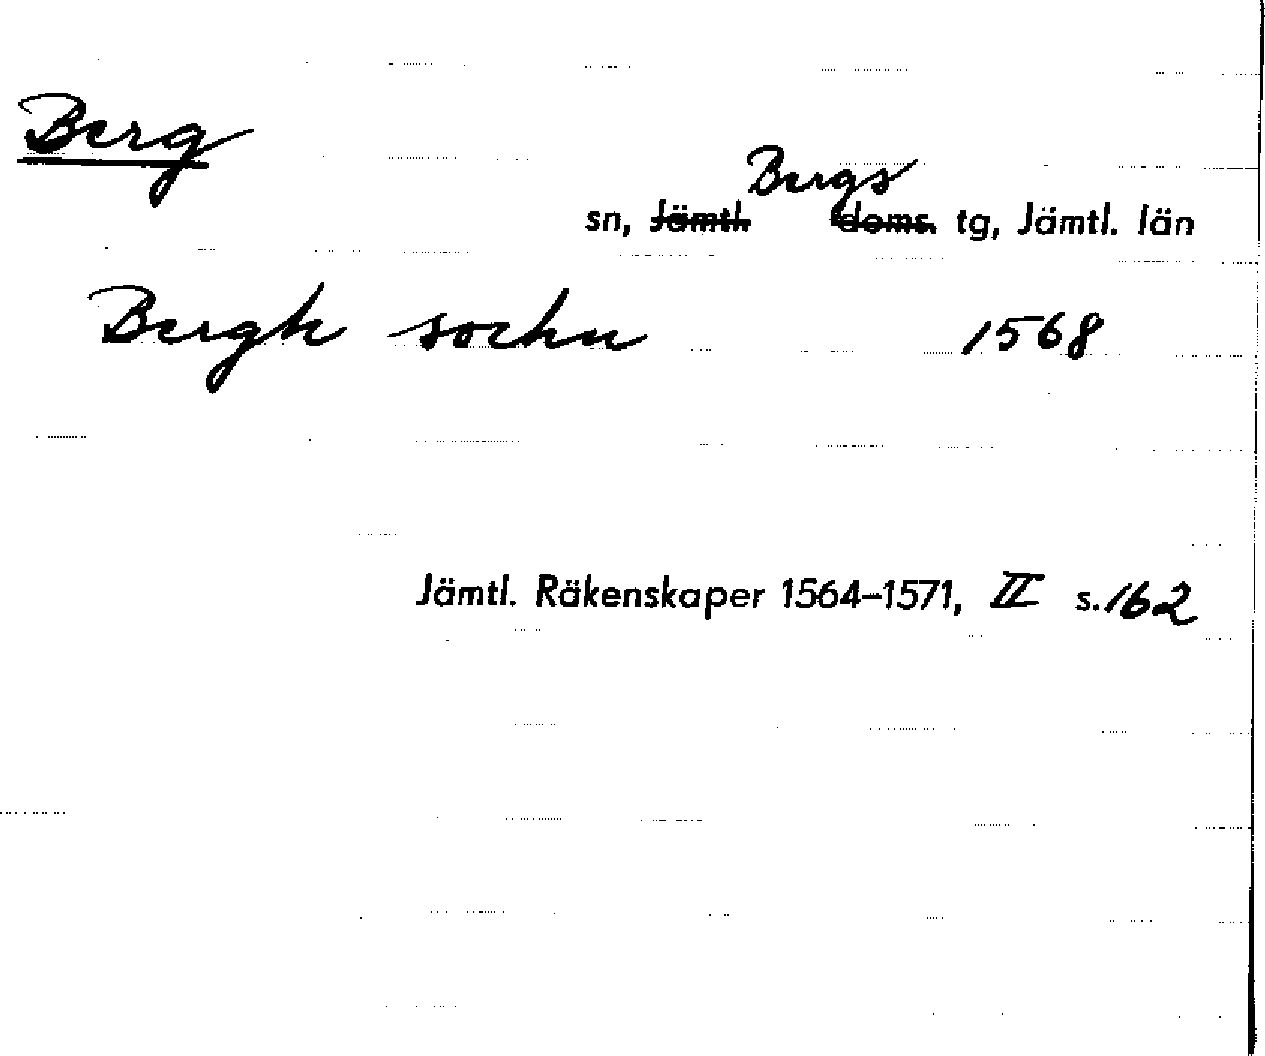 Berg
Bergs
sn, Jämtl. doms. tg, Jämtl. län
Bergh sochn 1568
Jämtl. Räkenskaper 1564–1571, II s. 162